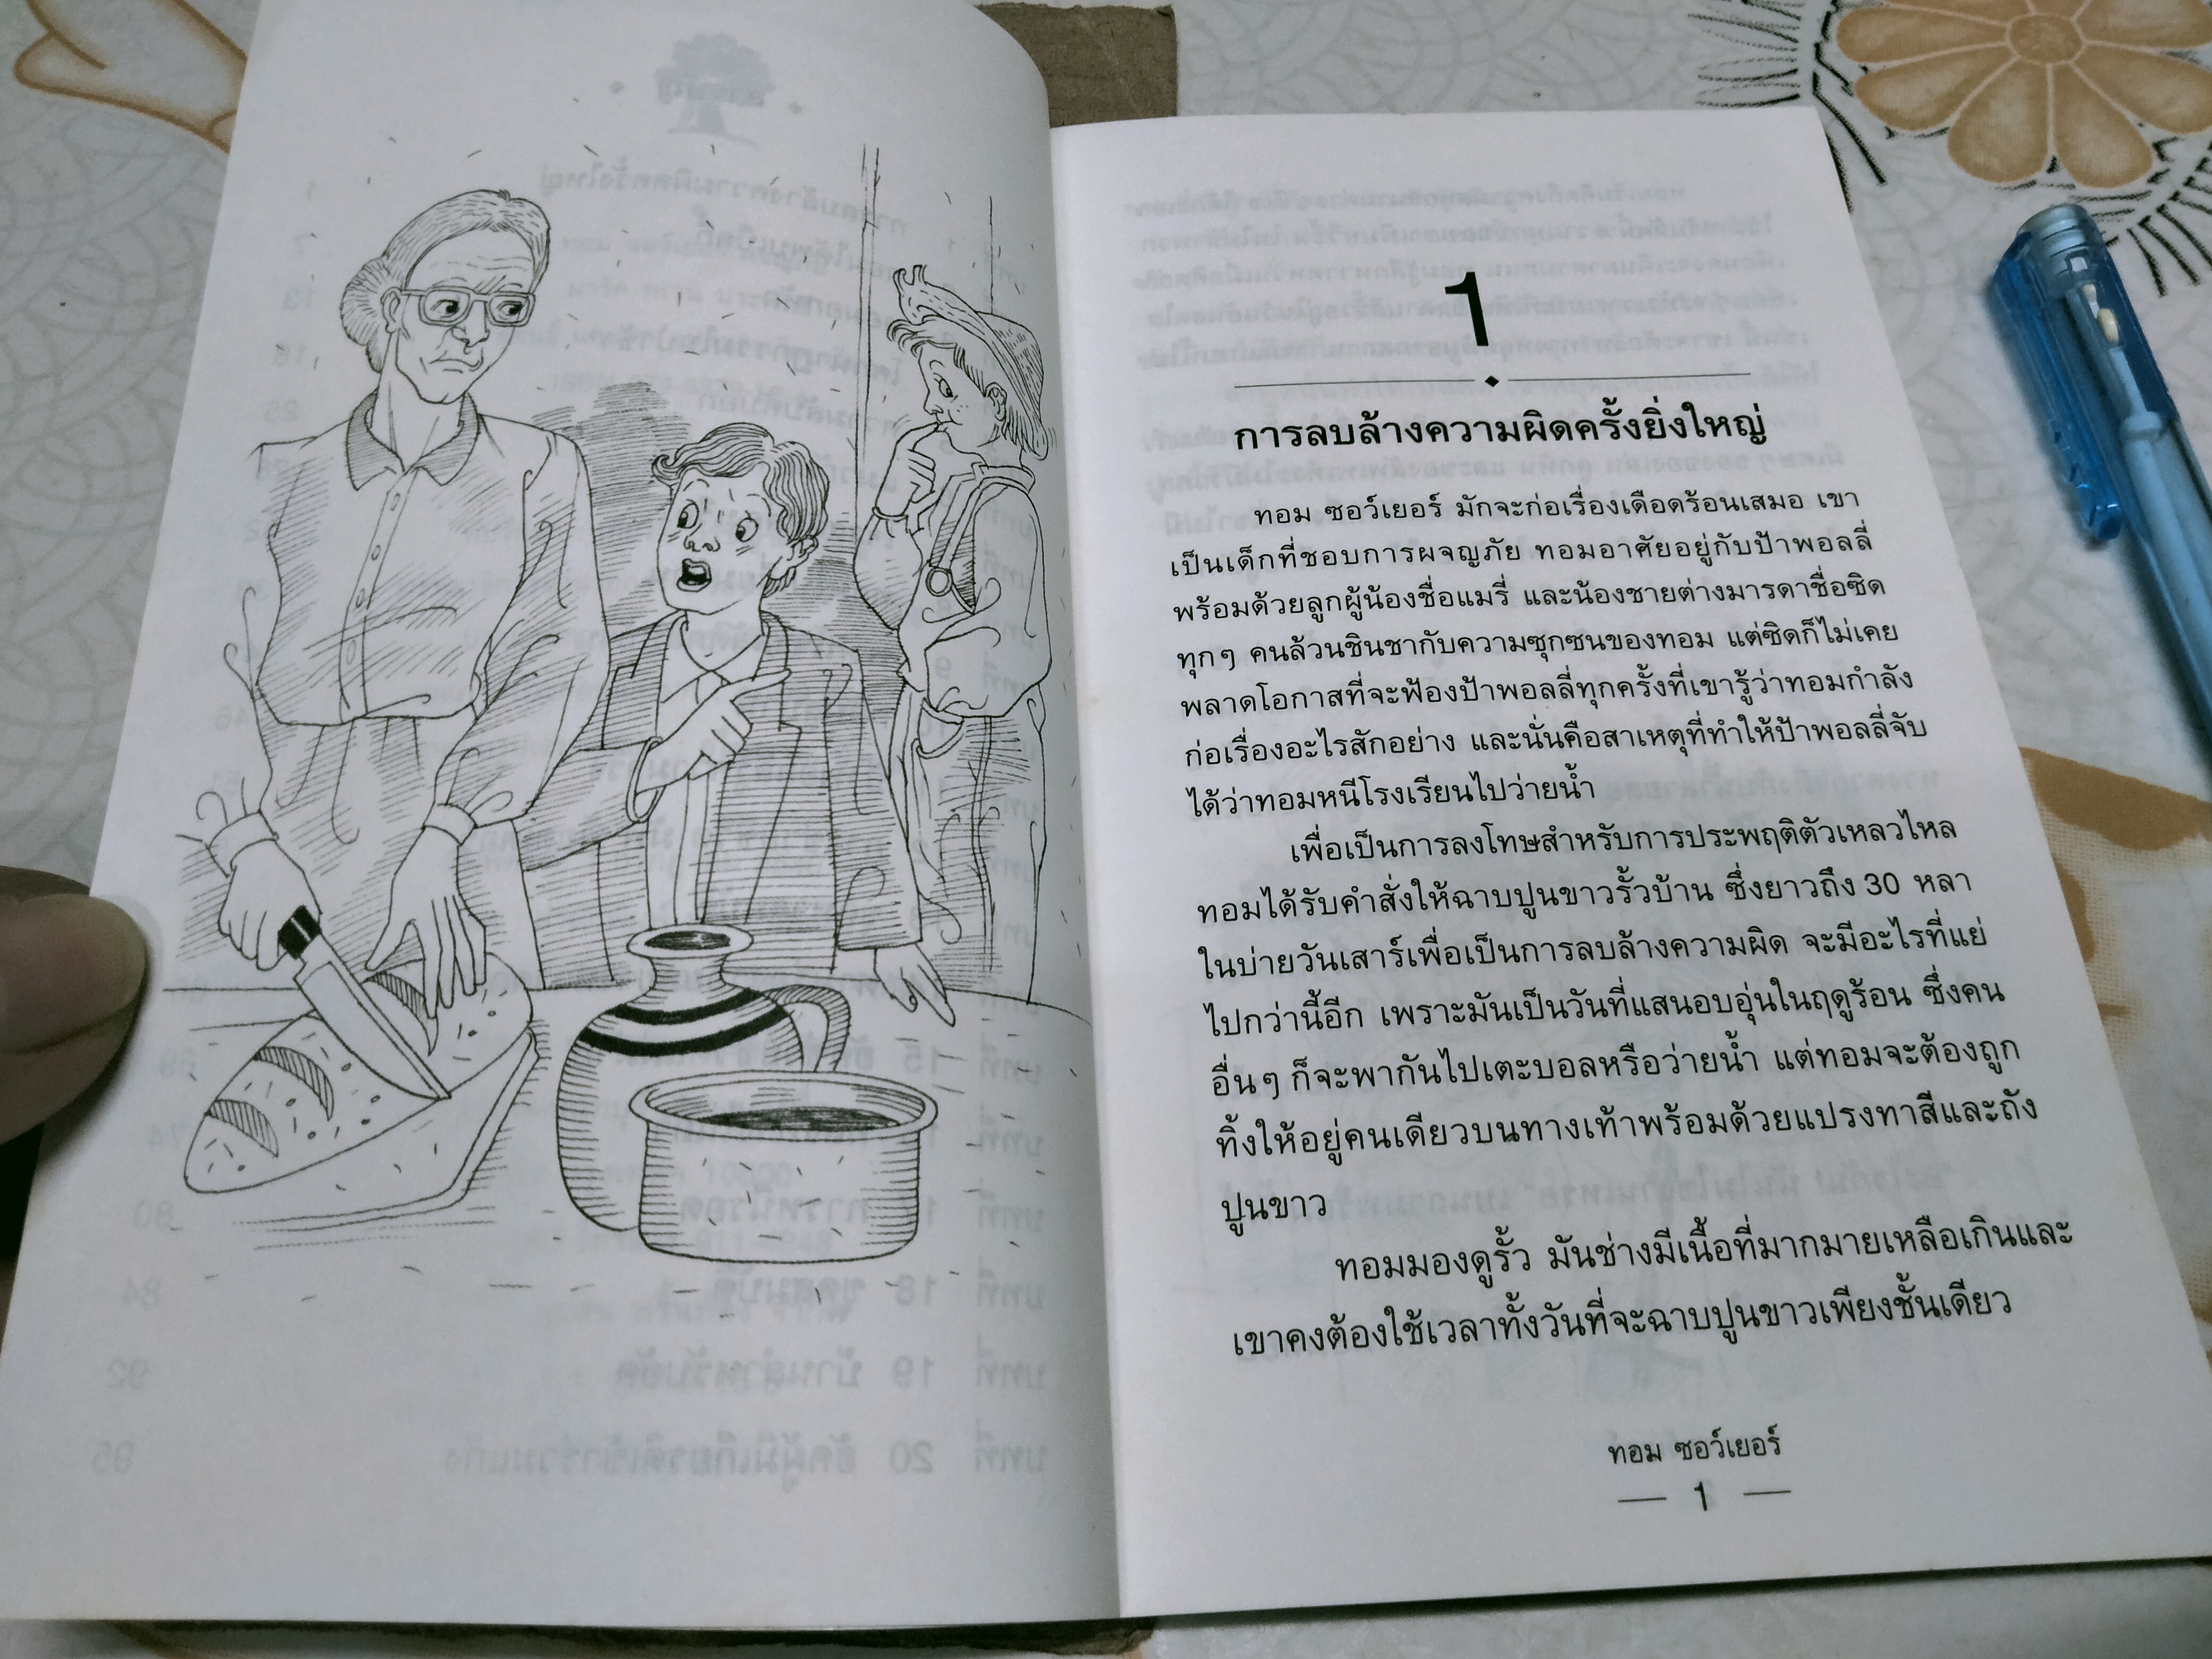 1
การลบล้างความผิดครั้งยิ่งใหญ่
ทอม ซอว์เยอร์ มักจะก่อเรื่องเดือดร้อนเสมอ เขา
เป็นเด็กที่ชอบการผจญภัย ทอมอาศัยอยู่กับป้าพอลลี่
พร้อมด้วยลูกผู้น้องชื่อแมรี่ และน้องชายต่างมารดาชื่อซิด
ทุกๆ คนล้วนชินชากับความซุกซนของทอม แต่ซิดก็ไม่เคย
พลาดโอกาสที่จะฟ้องป้าพอลลี่ทุกครั้งที่เขารู้ว่าทอมกำลัง
ก่อเรื่องอะไรสักอย่าง และนั่นคือสาเหตุที่ทำให้ป้าพอลลี่จับ
ได้ว่าทอมหนีโรงเรียนไปว่ายน้ำ
เพื่อเป็นการลงโทษสำหรับการประพฤติตัวเหลวไหล
ทอมได้รับคำสั่งให้ฉาบปูนขาวรั้วบ้าน ซึ่งยาวถึง 30 หลา
ในบ่ายวันเสาร์เพื่อเป็นการลบล้างความผิด จะมีอะไรที่แย่
ไปกว่านี้อีก เพราะมันเป็นวันที่แสนอบอุ่นในฤดูร้อน ซึ่งคน
อื่นๆ ก็จะพากันไปเตะบอลหรือว่ายน้ำ แต่ทอมจะต้องถูก
ทิ้งให้อยู่คนเดียวบนทางเท้าพร้อมด้วยแปรงทาสีและถัง
ปูนขาว
ทอมมองดูรั้ว มันช่างมีเนื้อที่มากมายเหลือเกินและ
เขาคงต้องใช้เวลาทั้งวันที่จะฉาบปูนขาวเพียงชั้นเดียว
ทอม ซอว์เยอร์
— 1 —